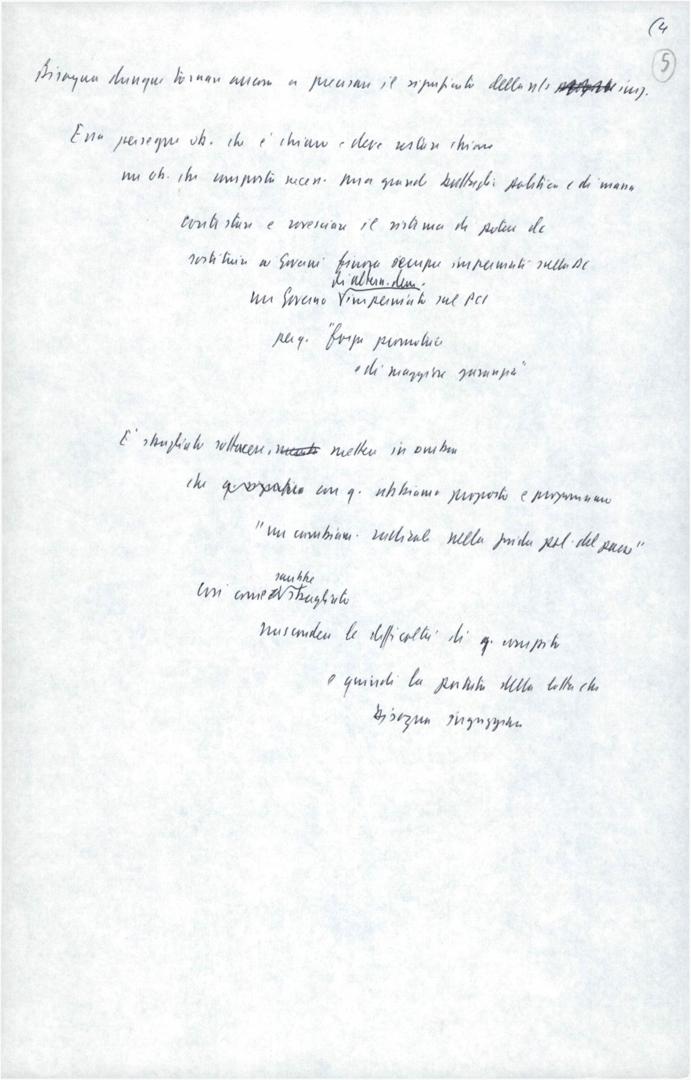 (4
5
Bisogna dunque tornare ancora a precisare il significato della
Essa persegue ob. che è chiaro e deve restare chiaro
un ob. che comporta neces. una grande battaglia politica e di massa
contestare e rovesciare il sistema di potere dc
sostituire ai Governi finora sempre imperniati sulla DC
di altern. dem.
un Governo imperniato sul PCI
per q. "forza promotrice
e di maggiore garanzia"
È sbagliato sottacere, mettere in ombra
che con q. abbiamo proposto e proponiamo
"un cambiam. radicale nella guida pol. del paese"
sarebbe
così come sbagliato
nascondere le difficoltà di q. compito
e quindi la portata della lotta che
bisogna ingaggiare